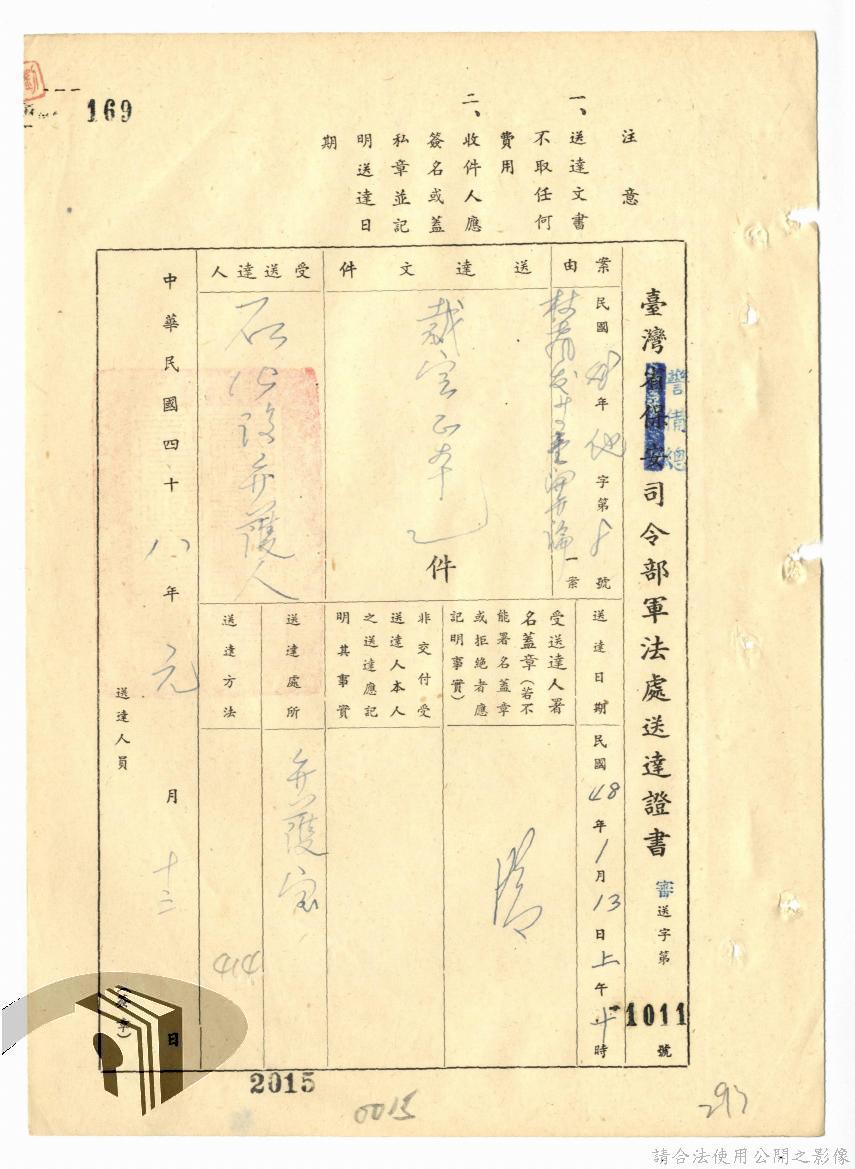 169
注意
一、送達文書
不取任何
費用
二、收件人應
簽名或蓋
私章並記
明送達日
期
臺灣省保安司令部軍法處送達證書
警備總
審送字第
1011
號
案由
民國 年 字第 號
一案
送達文件
裁定正本
件
受送達人
石公設弁護人
送達日期
民國48年1月13日上午十時
受送達人署
名蓋章(若不
能署名蓋章
或拒絕者應
記明事實)
非交付受
送達人本人
之送達應記
明其事實
送達處所
弁護室
送達方法
414
中華民國四十八年元月十三日
送達人員
(簽章)
2015
0015
293
請合法使用公開之影像